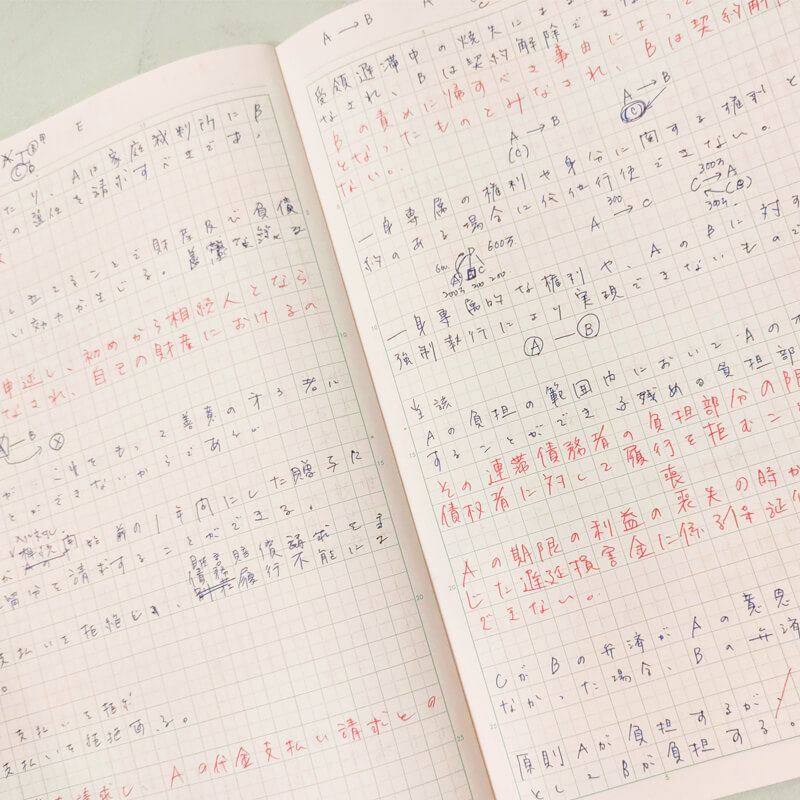 E
たり、Aは家庭裁判所にB
の選任を請求すべきです。
ることで財産及び負債
い効力が生じる。
申述し、初めから相続人となら
なされ、自己の財産におけるの
B
をもって善意の第三者に
とができないからである。
相続開始前の1年間にした贈与に
留分を請求することができる。
債務
履行不能によ
支払いを拒絶し、
損害賠償請求をま
支払いを拒む
支払いを拒絶する。
請求し、Aの代金支払い請求との
A→B
受領遅滞中の焼失によ
なされ、Bは契約解除できな
Bの責めに帰すべき事由によって
となったものとみなされ、Bは契約解
ない。
A→B
(C)
A→B
(C)
一身専属の権利や身分に関する権利と
約のある場合に代位行使できない。
300万
C→A
(B)
300万
A→C
300
600万
200万 200 200
一身専属的な権利や、AのBに対す
強制執行により実現できないもので
A—B
当該
Aの負担の範囲内においてAの
することができる残めの負担部
その連帯債務者の負担部分の限
債権者に対して履行を拒むこ
喪
Aの期限の利益の喪失の時か
じた遅延損害金に係る保証
できない。
CがBの弁済がAの意思
なかった場合、Bの弁済
原則Aが負担するが
としてBが負担する。